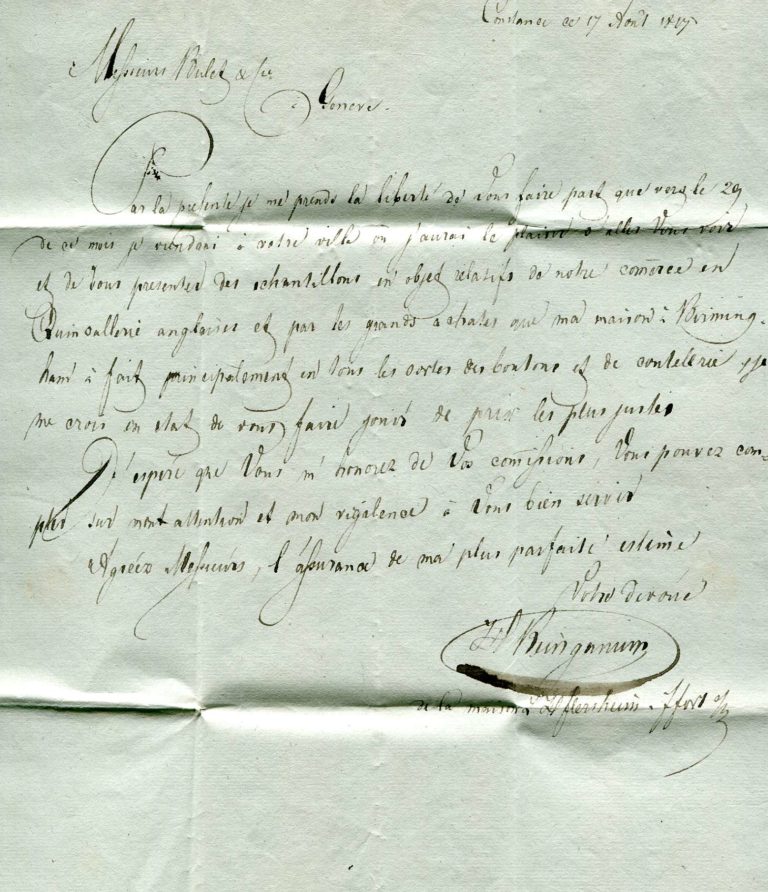 Constance ce 17 Août 1817
Messieurs & Cie
à Geneve.
Par la presente je me prends la liberté de Vous faire part que vers le 29
de ce mois je viendrai à votre ville ou j'aurai le plaisir d'aller Vous voir
et de Vous presenter des echantillons en objet relatifs de notre comerce en
Quincallerie anglaises et par les grands achates que ma maison à Birming-
ham à fait principalement en tous les sortes des boutons et de coutellerie je
me crois en etat de vous faire jouir de prix les plus justes
J'espere que Vous m'honorez de Vos comissions, Vous pouvez com-
pter sur mont attention et mon vigalence à Vous bien servir
Agréez Messieurs, l'assurance de ma plus parfaite estime
Votre devoué
de la maison Ffort s/m